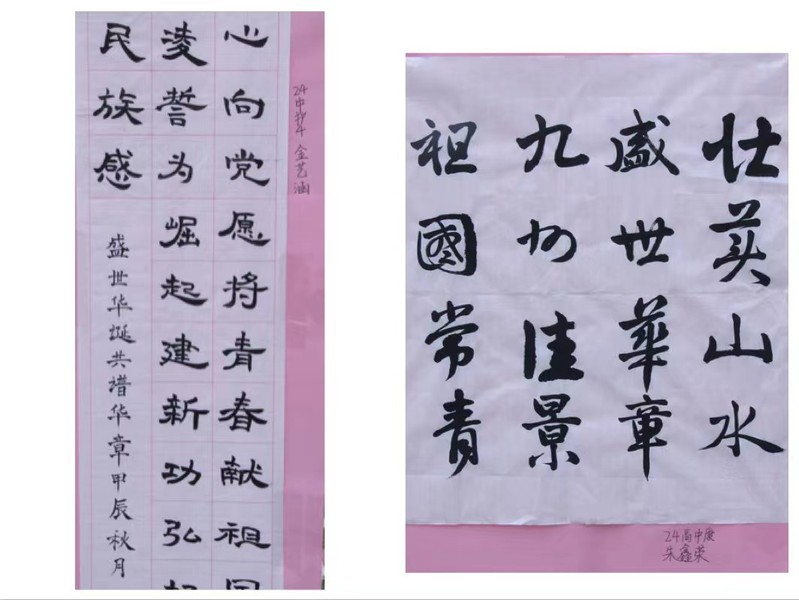 心向党愿将青春献祖国
凌誓为崛起建新功弘
民族感
盛世华诞共谱华章甲辰秋月
24中护4 金艺涵
壮美山水
盛世華章
九州佳景
祖國常青
24高中康
朱鑫荣